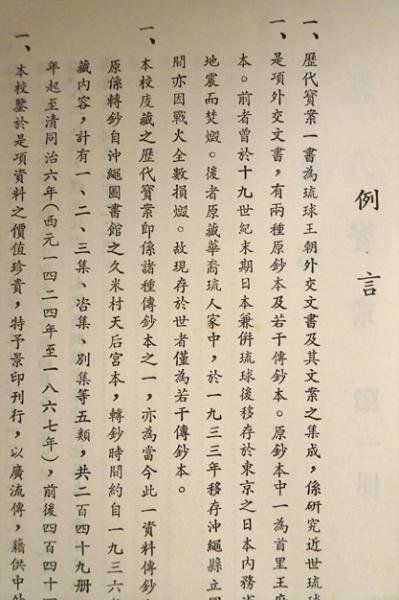 例言
一、歷代寶案一書為琉球王朝外交文書及其文案之集成，係研究近世琉球
一、是項外交文書，有兩種原鈔本及若干傳鈔本。原鈔本中一為首里王府
本。前者曾於十九世紀末期日本兼倂琉球後移存於東京之日本內務省
地震而焚燬。後者原藏華裔琉人家中，於一九三三年移存沖繩縣立圖
間亦因戰火全數損燬。故現存於世者僅為若干傳鈔本。
一、本校庋藏之歷代寶案卽係諸種傳鈔本之一，亦為當今此一資料傳鈔
原係轉鈔自沖繩圖書館之久米村天后宮本，轉鈔時間約自一九三六
藏內容，計有一、二、三集、咨集、別集等五類，共二百四十九册
年起至清同治六年（西元一四二四年至一八六七年），前後四百四十
一、本校鑒於是項資料之價值珍貴，特予景印刊行，以廣流傳，藉供中外